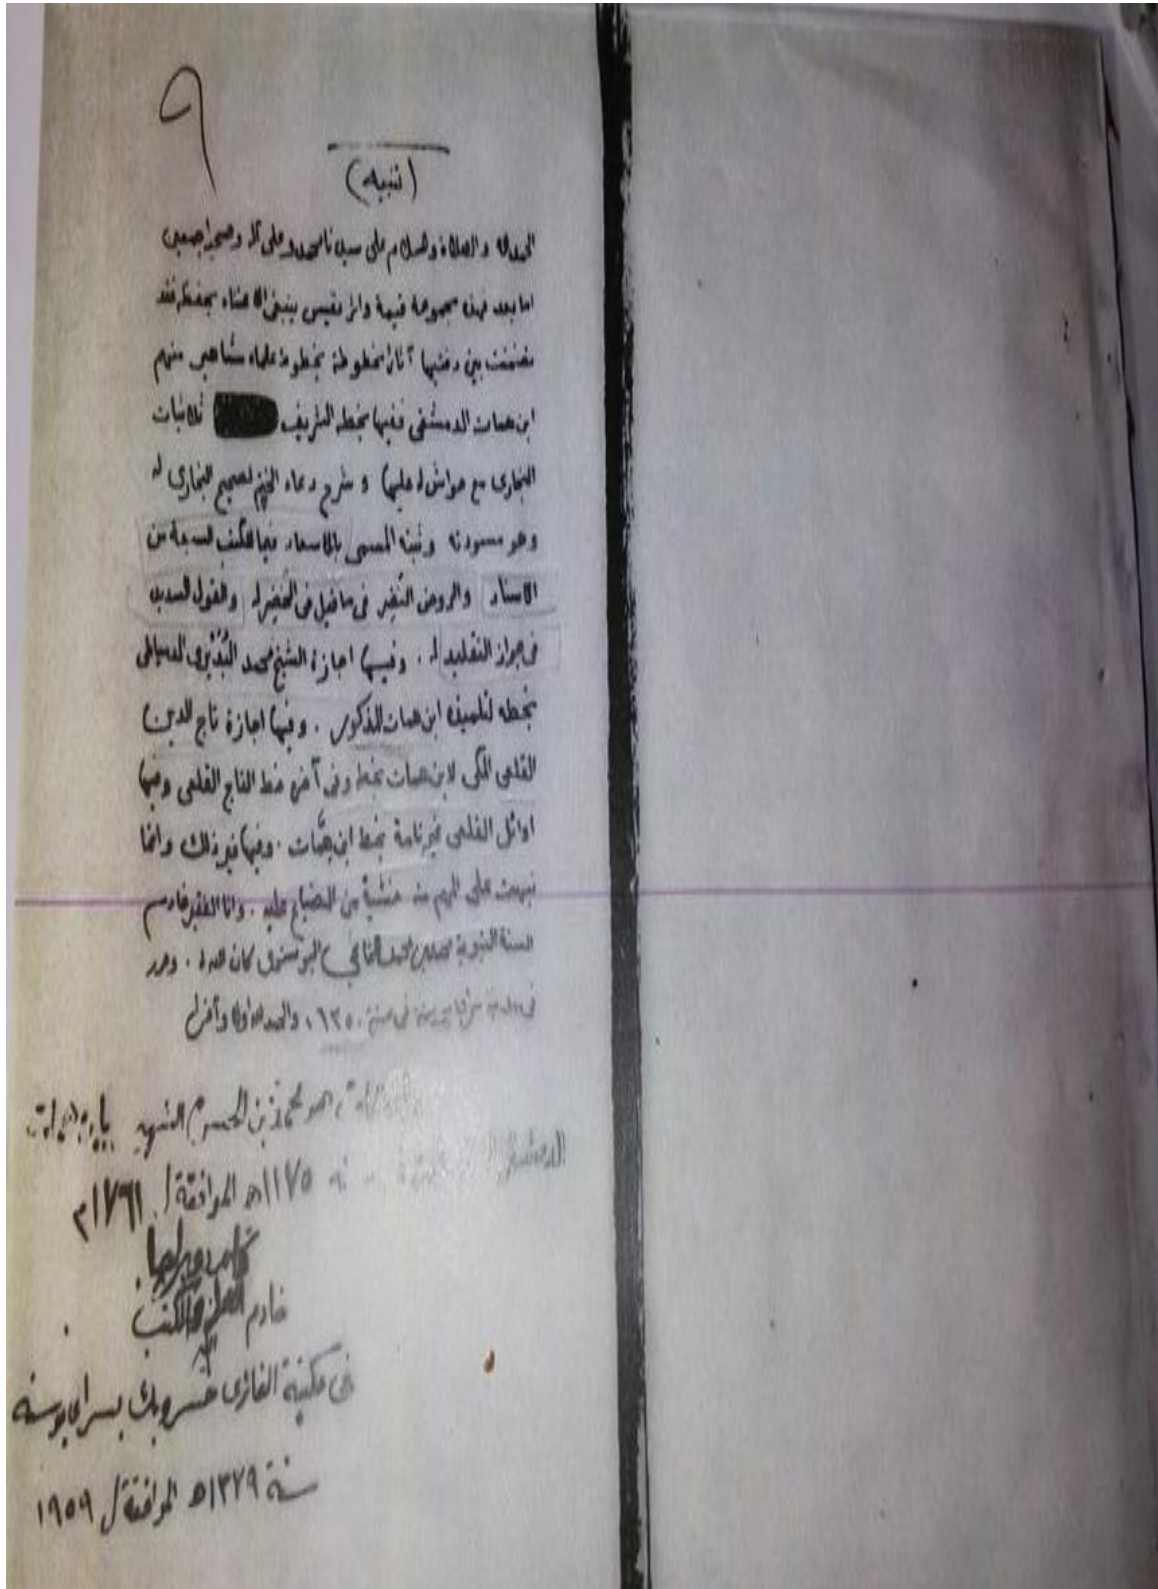 ٩
(تنبيه)
الحمد لله والصلاة والسلام على سيدنا محمد وعلى آله وصحبه اجمعين
اما بعد فهذه مجموعة قيمة واثر نفيس ينبغي الاعتناء بحفظه فقد
تضمنت بين دفتيها آثارا مخطوطة بخطوط علماء مشاهير منهم
ابن همات الدمشقي ففيها بخطه الشريف ثلاثيات
البخارى مع حواش له عليها و شرح دعاء الختم لصحيح البخارى له
وهو مسودته وثبته المسمى بالاسعاد فيما للكتب السبعة من
الاسناد والروض النضير في ما قيل في الخضر له والقول السديد
في جواز التقليد له . وفيها اجازة الشيخ محمد البديرى الدمياطى
بخطه لتلميذه ابن همات المذكور . وفيها اجازة تاج الدين
القلعى المكى لابن همات بخطه وفى آخره خط التاج القلعى وفيها
اوائل القلعى غير تامة بخط ابن همات . وفيها غير ذلك وانما
نبهت على المهم منه خشية من الضياع عليه . وانا الفقير خادم
السنة النبوية محمد بن محمد الخانجي البوسنوى كان الله له . وحرر
في سنة ١٣٥٠ ، والحمد لله اولا وآخرا
هو محمد بن الحسن الشهير بابن همات
الدمشقي سنة ١١٧٥ه‍ الموافقة ل ١٧٦١م
خادم العلم والكتب
في مكتبة الغازى خسرو بك بسراى بوسنه
سنة ١٣٧٩ه‍ الموافقة ل ١٩٥٩